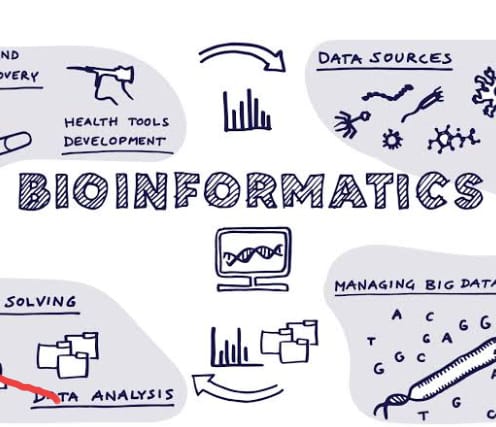 ND
OVERY
HEALTH TOOLS
DEVELOPMENT
DATA SOURCES
BIOINFORMATICS
SOLVING
DATA ANALYSIS
MANAGING BIG DATA
A C
T G A G G
G G C
T G C